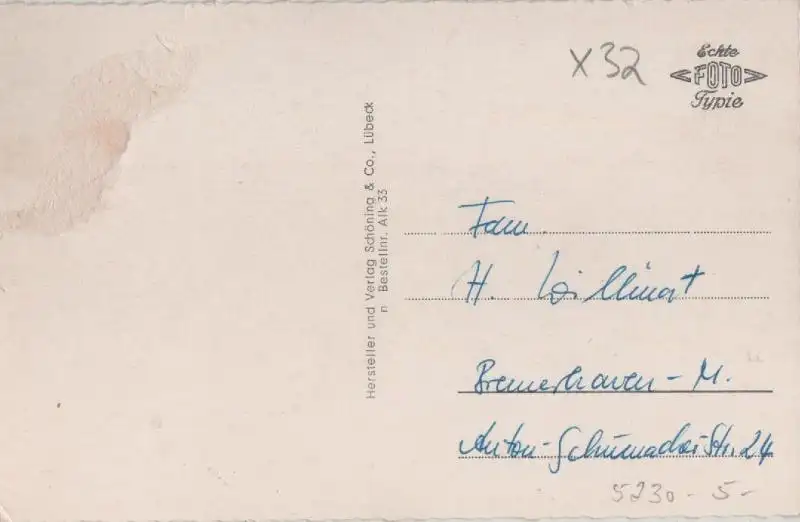 X32
Echte
FOTO
Typie
Hersteller und Verlag Schöning & Co., Lübeck
n Bestellnr. Alk 33
Fam.
H. Willmat
Bremerhaven - M.
Anton-Schumacher Str. 24
5230 - 5 -